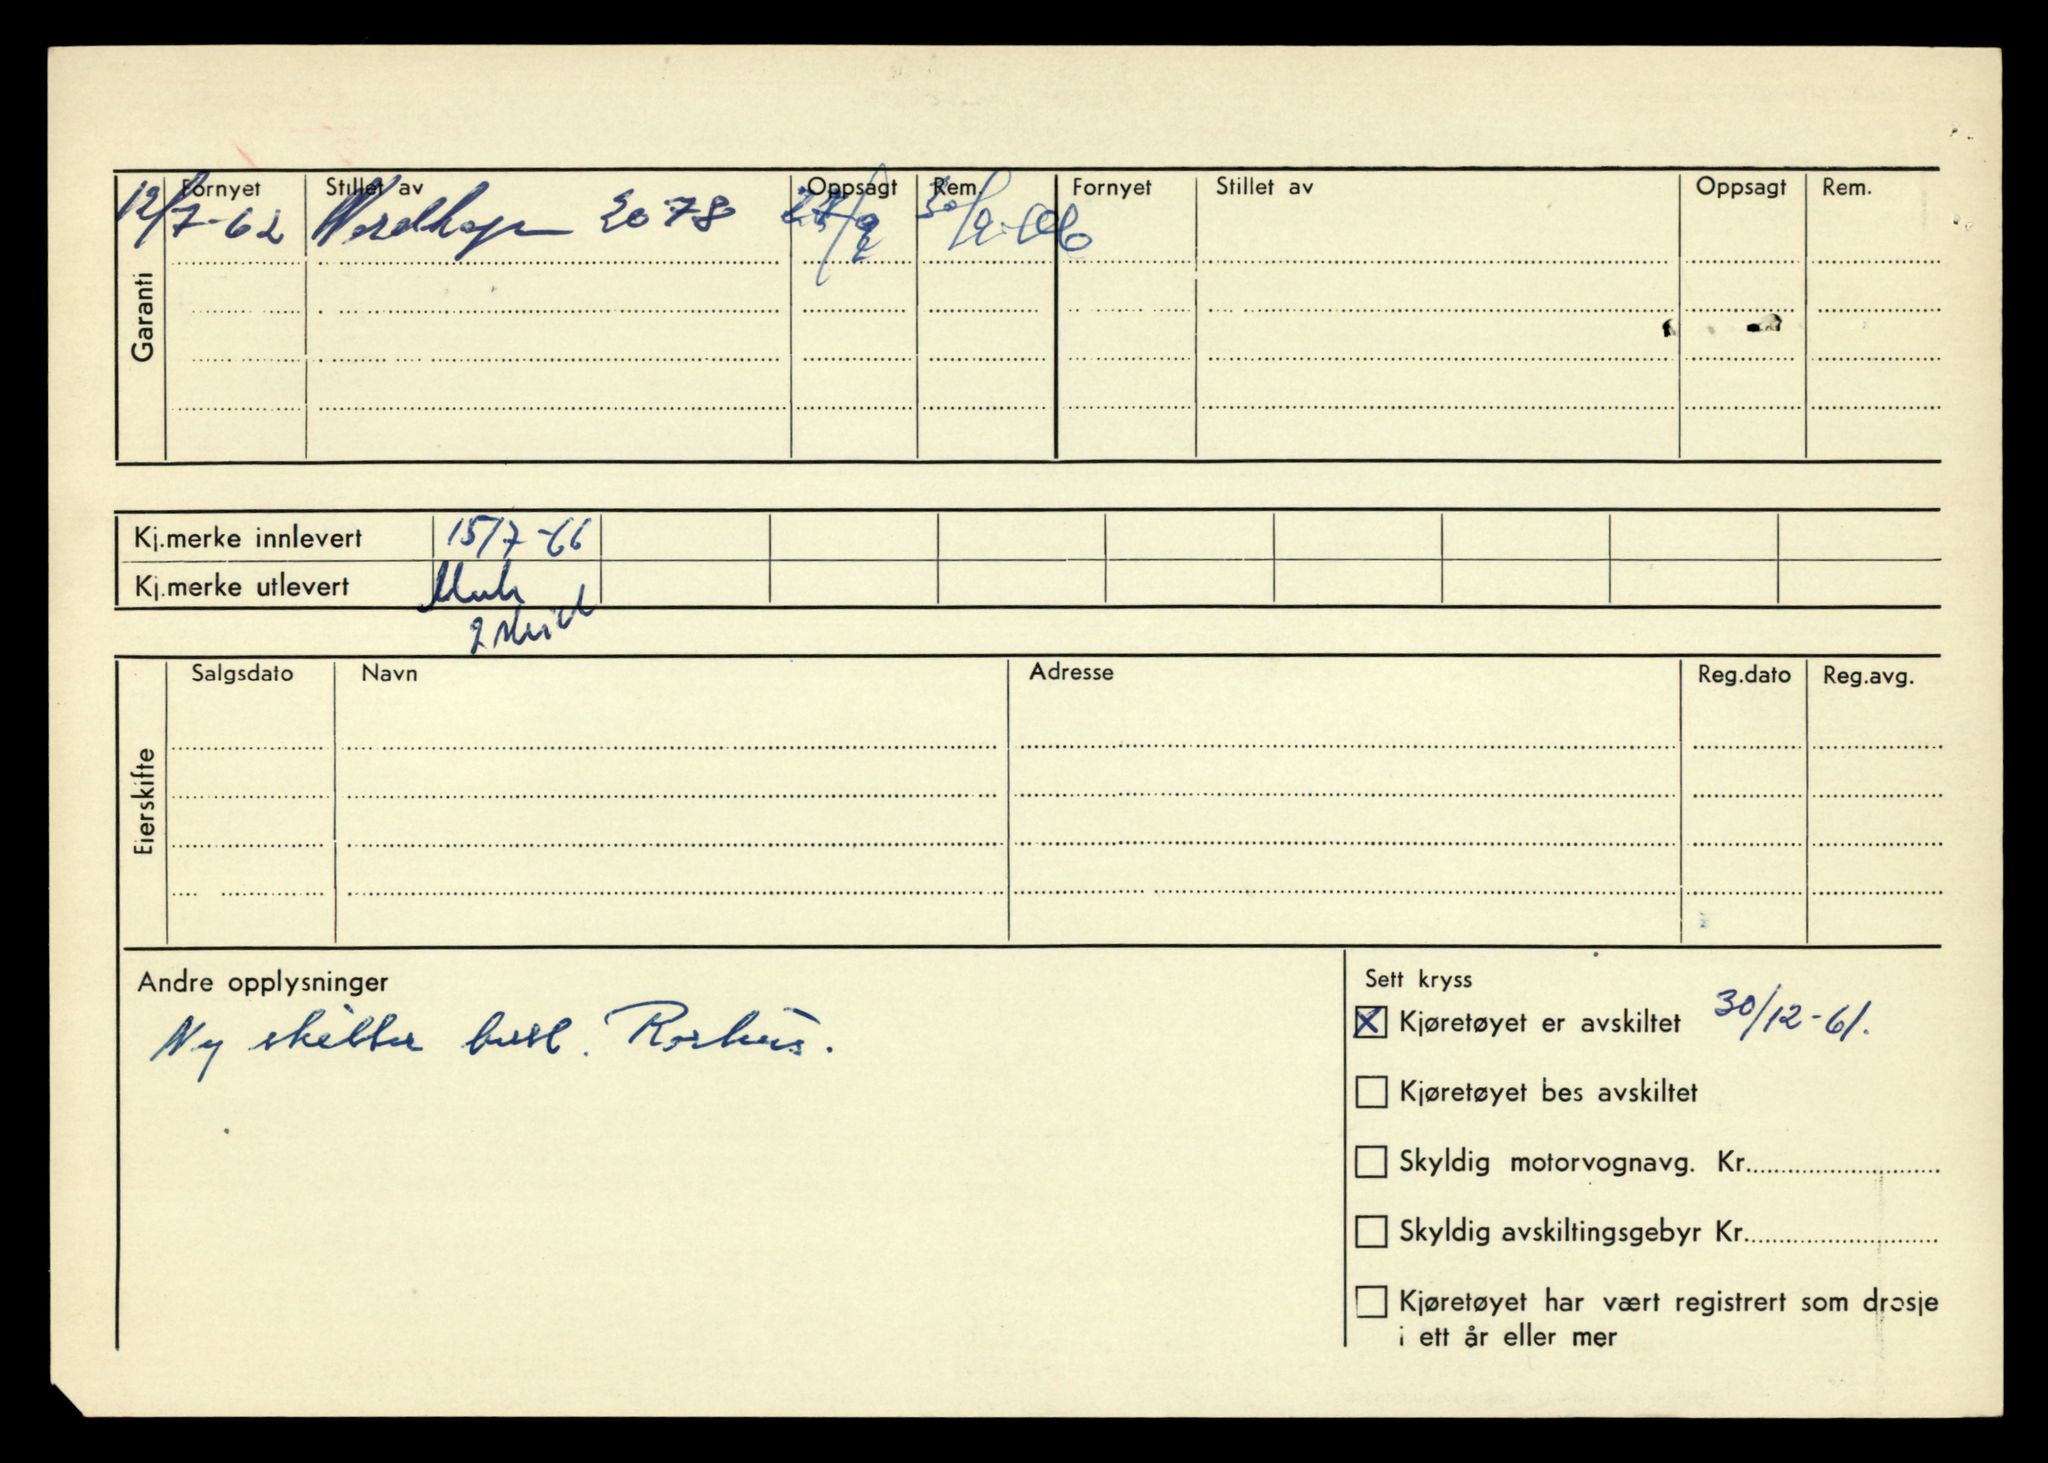 Garanti
Fornyet Stillet av Oppsagt Rem. Fornyet Stillet av Oppsagt Rem.
12/7-62 2078 27/9 30/9-66
Kj.merke innlevert 15/7-66
Kj.merke utlevert
2 skilt
Eierskifte
Salgsdato Navn Adresse Reg.dato Reg.avg.
Andre opplysninger
Ny skilter best. Rorhus.
Sett kryss
Kjøretøyet er avskiltet 30/12-61.
Kjøretøyet bes avskiltet
Skyldig motorvognavg. Kr.
Skyldig avskiltingsgebyr Kr.
Kjøretøyet har vært registrert som drosje
i ett år eller mer